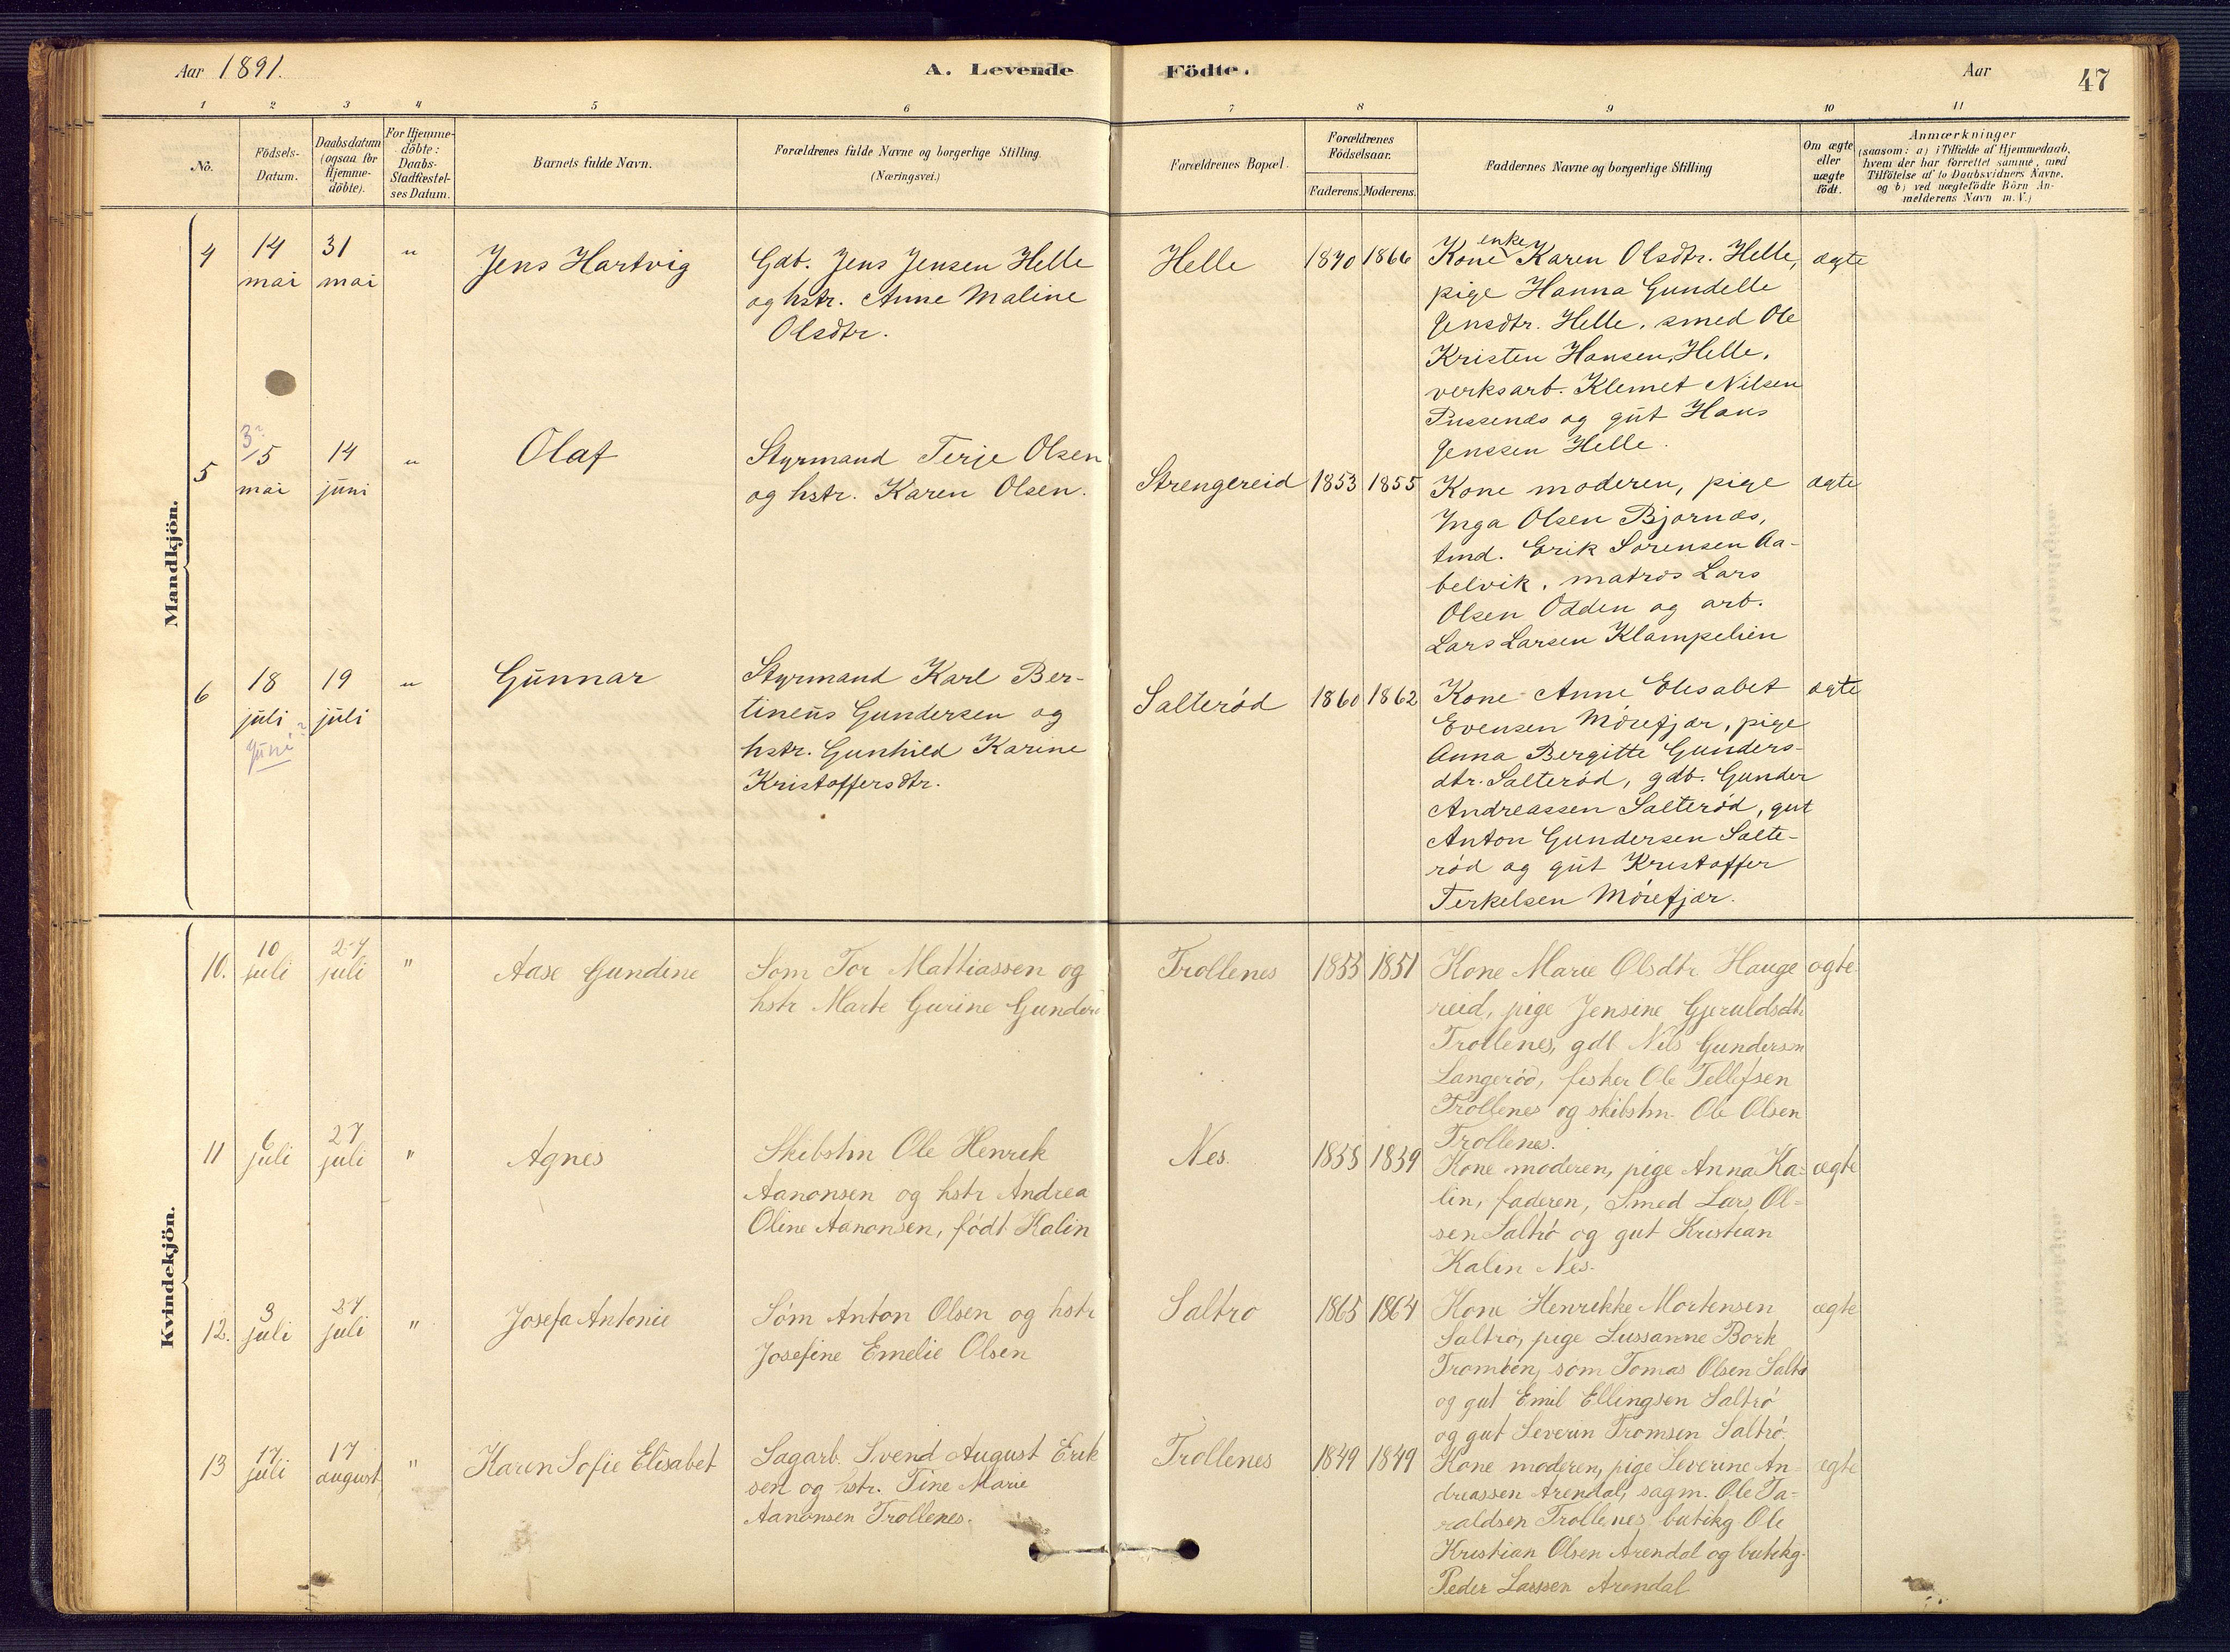 Aar 1891.
A. Levende
Födte.
Aar
47
1 2 3 4 5 6 7 8 9 10 11
No.
Födsels-
Datum.
Daabsdatum
(ogsaa for
Hjemme-
döbte).
For Hjemme-
döbte:
Daabs-
Stadfæstel-
ses Datum.
Barnets fulde Navn.
Forældrenes fulde Navne og borgerlige Stilling.
(Næringsvei.)
Forældrenes Bopæl.
Forældrenes
Födselsaar.
Faderens. Moderens.
Faddernes Navne og borgerlige Stilling
Om ægte
eller
uægte
födt.
Anmærkninger
(saasom: a) i Tilfælde af Hjemmedaab,
hvem der har forrettet samme, med
Tilföielse af to Daabsvidners Navne,
og b) ved uægtefödte Börn An-
melderens Navn m.V.)
Mandkjön.
4
14
mai
31
mai
"
Jens Hartvig
Gdb. Jens Jensen Helle
og hstr. Anne Maline
Olsdtr.
Helle
1840 1866
enke
Kone Karen Olsdtr. Helle,
pige Hanna Gundelle
Jensdtr. Helle, smed Ole
Kristen Hansen, Helle,
verksarb. Klemet Nilsen
Pussenes og gut Hans
Jenssen Helle.
ægte
5
3?
15
mai
14
juni
"
Olaf
Styrmand Terje Olsen
og hstr. Karen Olsen.
Strengereid
1853 1855
Kone moderen, pige
Inga Olsen Bjørnæs,
tmd. Erik Sørensen Aa-
belvik, matros Lars
Olsen Odden og arb.
Lars Larsen Klampelien
ægte
6
18
juli
juni?
19
juli
"
Gunnar
Styrmand Karl Ber-
tineus Gundersen og
hstr. Gunhild Karine
Kristoffersdtr.
Salterød
1860 1862
Kone Anne Elisabet
Evensen Mørefjær, pige
Anna Bergitte Gunders-
dtr. Salterød, gdb. Gunder
Andreassen Salterød, gut
Anton Gundersen Salte-
rød og gut Kristoffer
Terkelsen Mørefjær.
ægte
Kvindekjön.
10.
10
juli
27
juli
"
Aase Gundine
Søm Tor Mattiassen og
hstr Marte Gurine
Trollenes
1853 1851
Kone Marie Olsdtr Hauge
reid, pige Jensine Gjeruldsdtr
Trollenes, gdb Nils Gundersen
Langerød, fisker Ole Tellefsen
Trollenes og skibstm. Ole Olsen
Trollenes.
ægte
11
6
juli
27
juli
"
Agnes
Skibstm Ole Henrik
Aanonsen og hstr Andrea
Oline Aanonsen, født Kalin
Nes.
1858 1859
Kone moderen, pige Anna Ka-
lin, faderen, Smed Lars Ol-
sen Saltrø og gut Kristian
Kalin Nes.
ægte
12.
3
juli
27
juli
"
Josefa Antonie
Søm Anton Olsen og hstr
Josefine Emelie Olsen
Saltrø
1865 1864
Kone Henrikke Mortensen
Saltrø, pige Sussanne Bork
Tromøen, søm Tomas Olsen Saltrø
og gut Emil Ellingsen Saltrø
og gut Severin Tromsen Saltrø.
ægte
13
17
juli
17
august
"
Karen Sofie Elisabet
Sagarb. Svend August Erik
sen og hstr. Tine Marie
Aanonsen Trollenes.
Trollenes
1849 1849
Kone moderen, pige Severine An-
dreassen Arendal, sagm. Ole Ta-
raldsen Trollenes, butikg. Ole
Kristian Olsen Arendal og butikg.
Peder Larssen Arendal
ægte